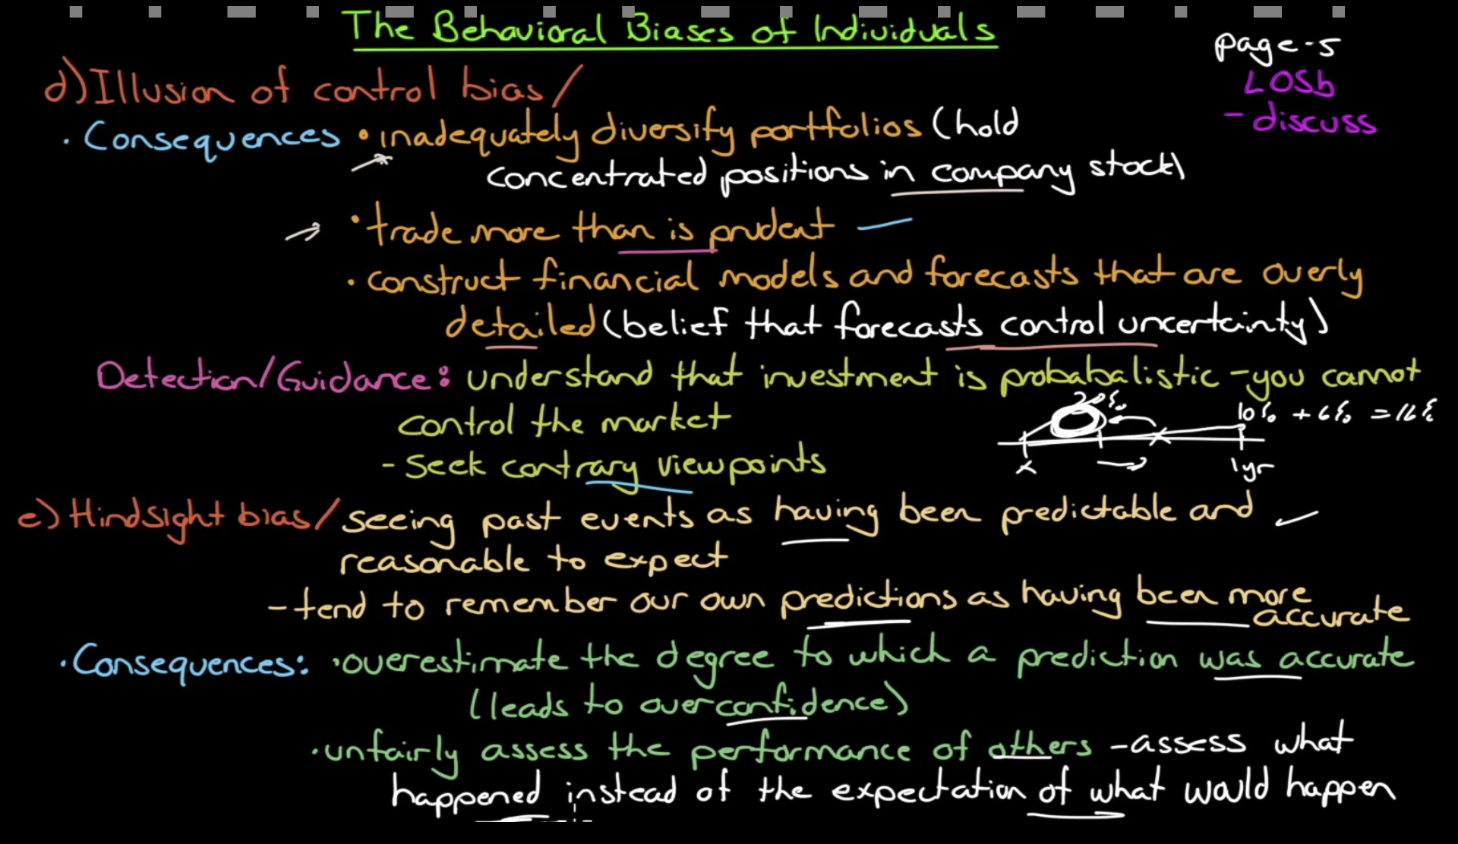 The Behavioral Biases of Individuals
page-5
LOSb
- discuss
d) Illusion of control bias/
· Consequences · inadequately diversify portfolios (hold
concentrated positions in company stock)
· trade more than is prudent
· construct financial models and forecasts that are overly
detailed (belief that forecasts control uncertainty)
Detection/Guidance: understand that investment is probabalistic - you cannot
control the market
20%
10% + 6% = 16%
x
1yr
- seek contrary viewpoints
e) Hindsight bias/ seeing past events as having been predictable and
reasonable to expect
- tend to remember our own predictions as having been more
accurate
· Consequences: · overestimate the degree to which a prediction was accurate
(leads to overconfidence)
· unfairly assess the performance of others - assess what
happened instead of the expectation of what would happen